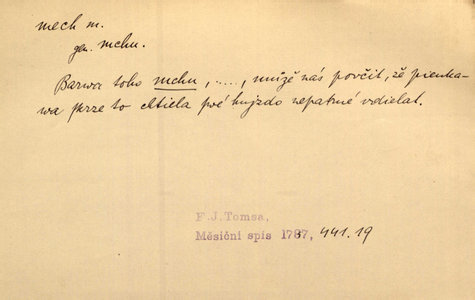 mech m.
gen. mchu.
Barwa toho mchu, ....., může nás povčit, že pienka-
wa prze to chtiela své hnjzdo nepatrné vdielat.
F.J.Tomsa,
Měsíční spis 1787, 441.19